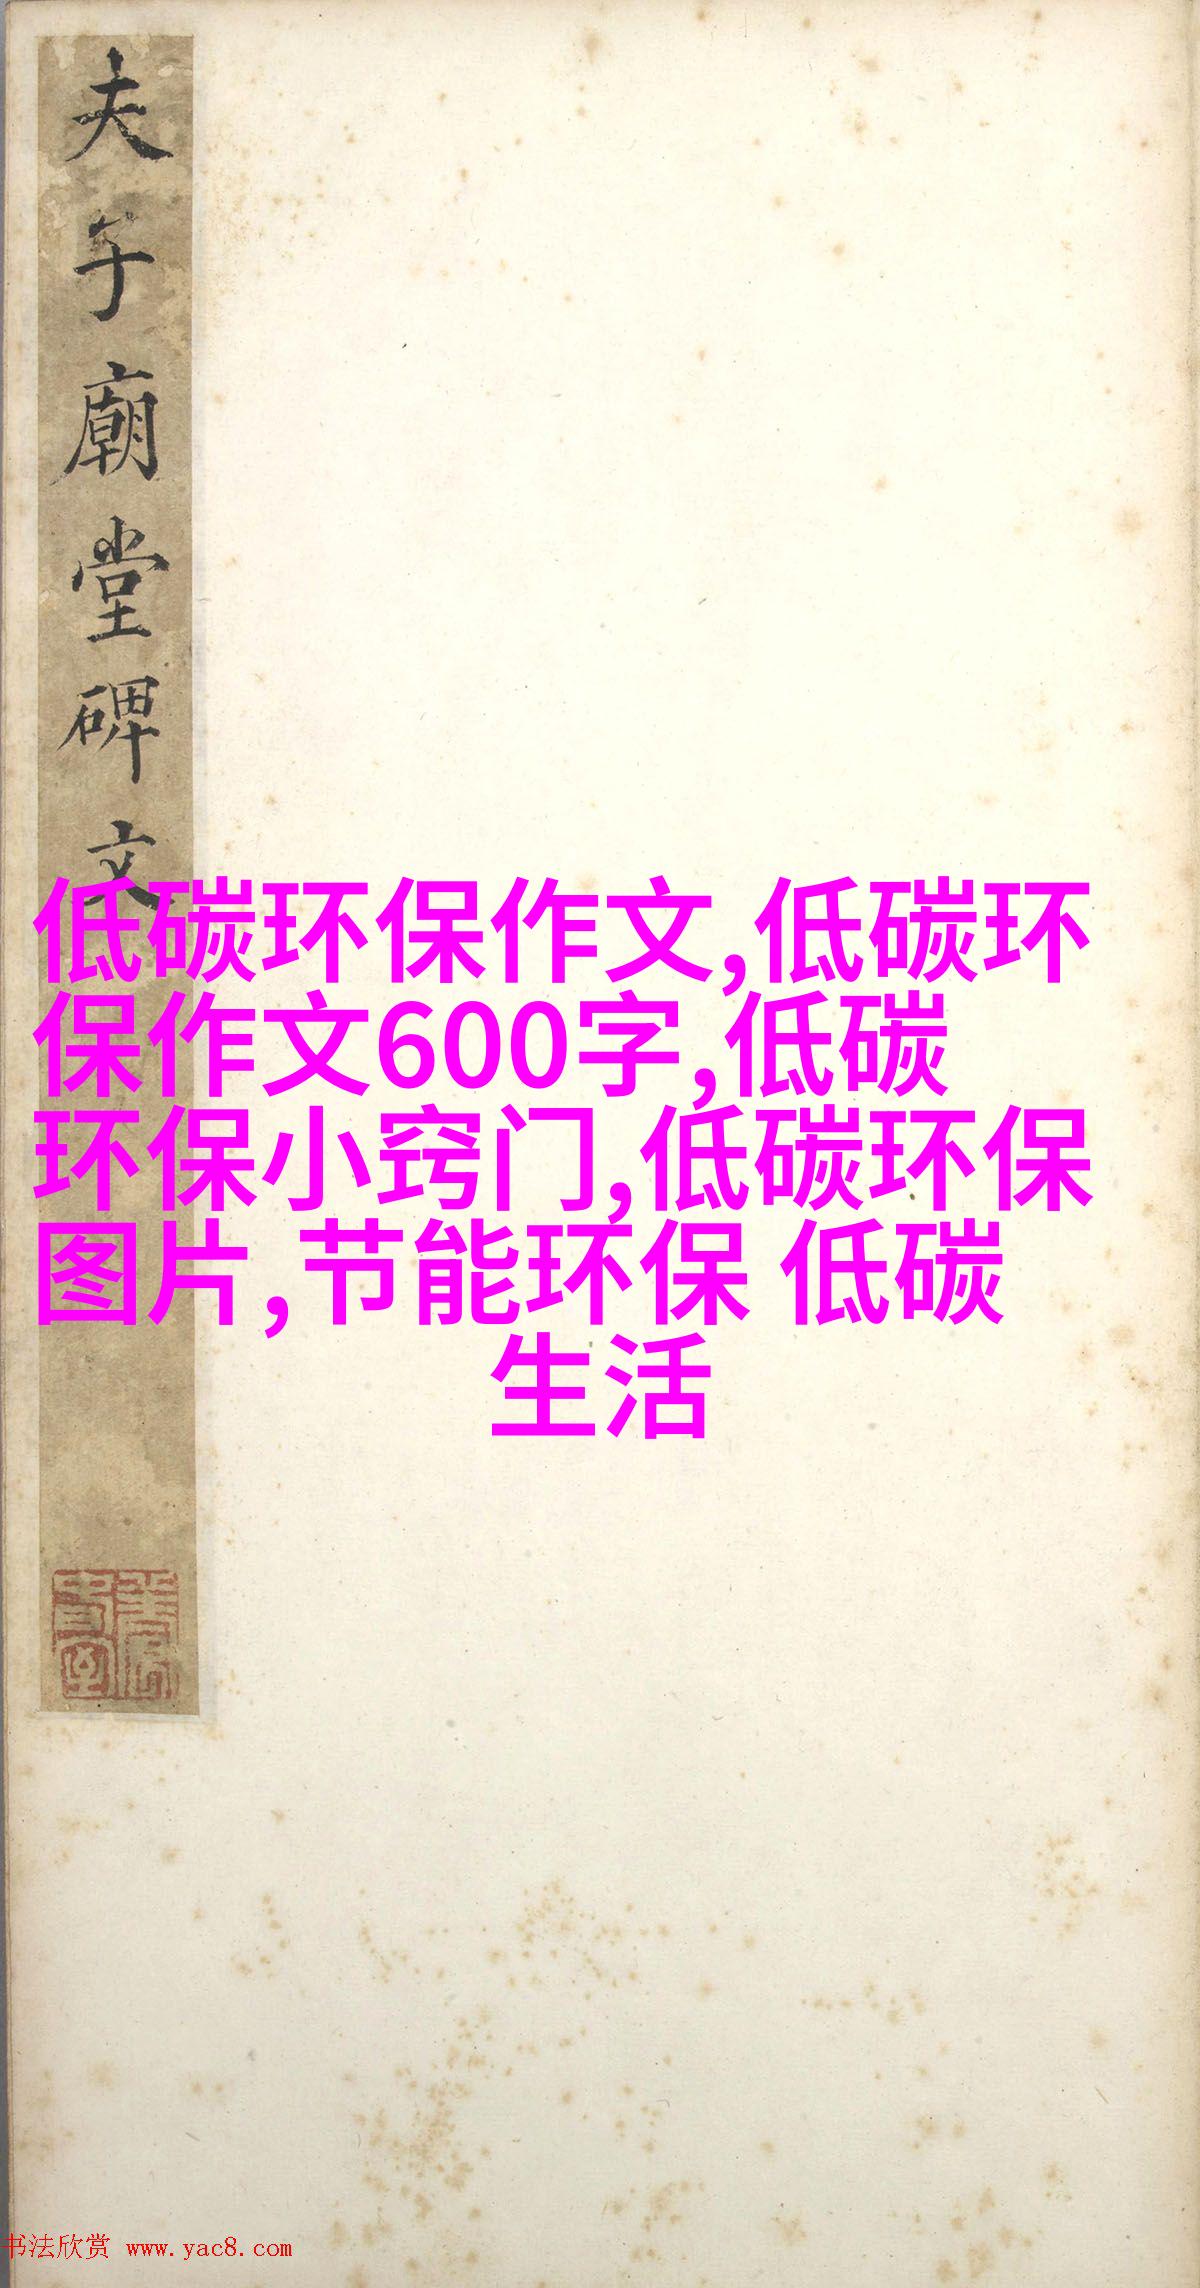 夫子廟堂碑文
低碳环保作文,低碳环
保作文600字,低碳
环保小窍门,低碳环保
图片,节能环保 低碳
生活
书法欣赏 www.yac8.com